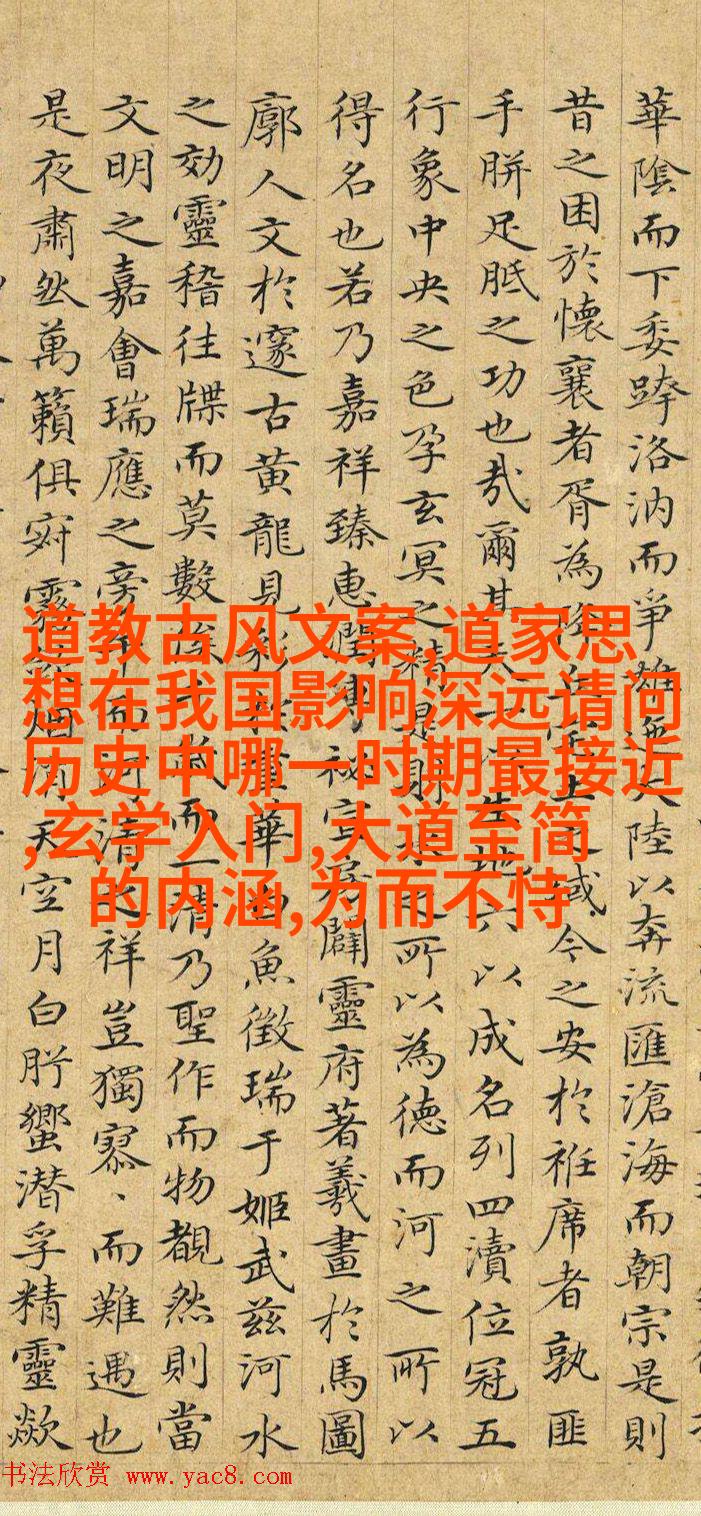 道教古风文案,道家思
想在我国影响深远请问
历史中哪一时期最接近
,玄学入门,大道至简
的内涵,为而不恃
華陰而下委跨洛汭而爭雄大陸以奔流匯滄海而朝宗是則
昔之困於懷襄者胥為降之域今之安於袵席者孰匪
手胼足胝之功也哉爾其天一以生地六以成名列四瀆位冠五
行象中央之色孕玄冥之精是則水之所以為德而河之所以
得名也若乃嘉祥臻惠闢靈府著羲畫於馬圖
廓人文於邃古黃龍見華白魚徵瑞于姬武茲河水
之効靈稽往牒而莫數而一清乃聖作而物覩然則當
文明之嘉會瑞應之旁午而河清之祥豈獨寡、而難遇也
是夜肅然萬籟俱寂露烟消天空月白肸蠁潜孚精靈歘
书法欣赏 www.yac8.com